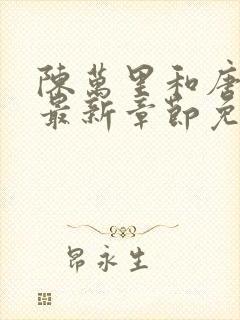 陳萬里和唐
最新章節免
昂永生